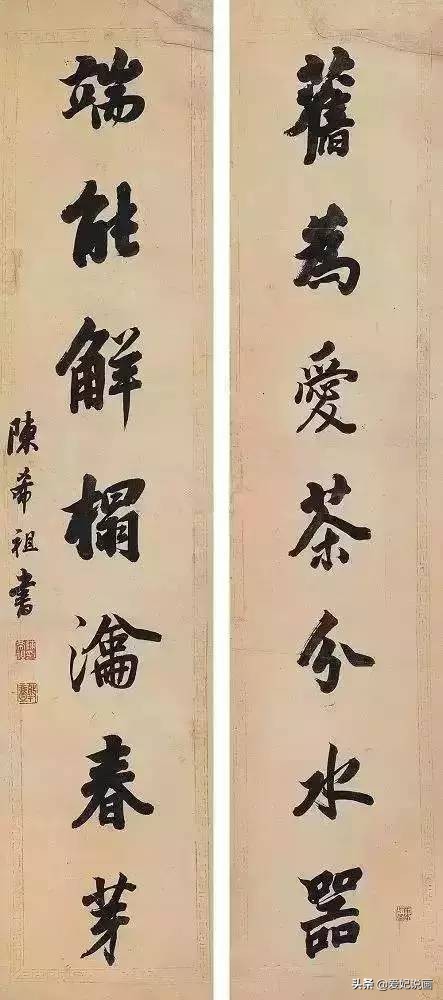 舊為愛茶分水器
端能解榻瀹春芽
陳希祖書
头条@爱妃说画